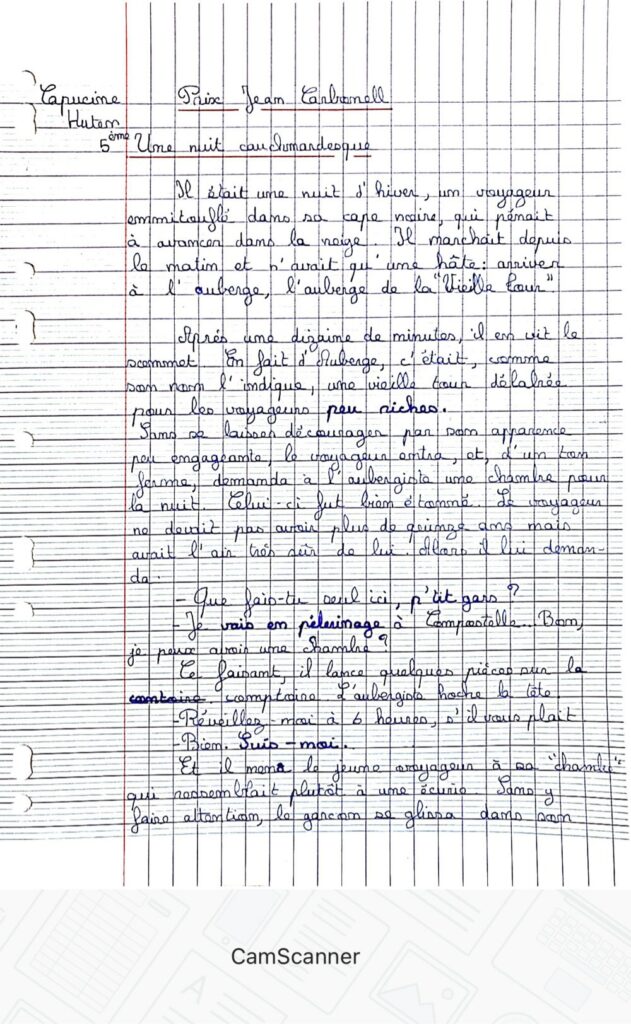 Capucine Prix Jean Carbonell
Hutin
5ème Une nuit cauchmardesque
Il était une nuit d'hiver, un voyageur
emmitouflé dans sa cape noire, qui pénait
à avancer dans la neige. Il marchait depuis
le matin et n'avait qu'une hâte : arriver
à l'auberge, l'auberge de la "Vieille tour"
Aprés une dizaine de minutes, il en vit le
sommet. En fait d'Auberge, c'était, comme
son nom l'indique, une vieille tour délabrée
pour les voyageurs peu riches.
Sans se laisser décourager par son apparence
peu engageante, le voyageur entra, et, d'un ton
ferme, demanda à l'aubergiste une chambre pour
la nuit. Celui-ci fut bien étonné. Le voyageur
ne devait pas avoir plus de quinze ans mais
avait l'air très sûr de lui. Alors il lui deman-
da :
- Que fais-tu seul ici, p'tit gars ?
- Je vais en pélerinage à Compostelle... Bon,
je peux avoir une chambre ?
Ce faisant, il lance quelques pièces sur la
contoire. comptoire. L'aubergiste hoche la tête.
- Réveillez-moi à 6 heures, s'il vous plait
- Bien. Suis-moi.
Et il mena le jeune voyageur à sa "chambre"
qui ressemblait plutôt à une écurie. Sans y
faire attention, le garcon se glissa dans son
CamScanner